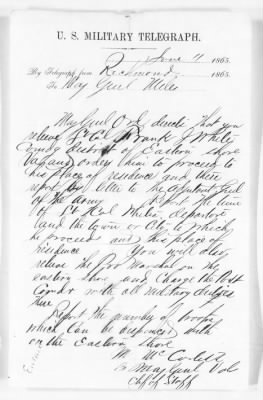 U. S. MILITARY TELEGRAPH.
June 4 1865.
By Telegraph from Richmond, 1865.
To Maj Genl Miles
Maj Genl Ord directs that you
relieve Lt Col Frank J White
comdg district of Eastern Shore
Va and order him to proceed to
his place of residence and there
report by letter to the Adjutant Genl
of the Army Report the time
of Lt Col Whites departure
and the town or City to which
he proceed and his place of
residence You will also
relieve the Pro Marshal on the
eastern shore and charge the Post
Comdr with all military duties
there
Report the number of troops
which can be dispensed with
on the Eastern Shore
Maj Genl Vol
Chf of Staff